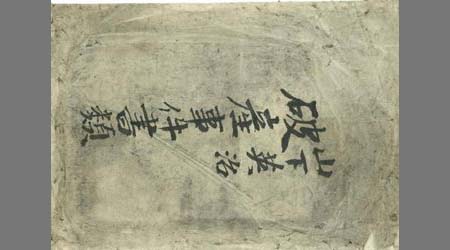 山下英治
破産事件書類